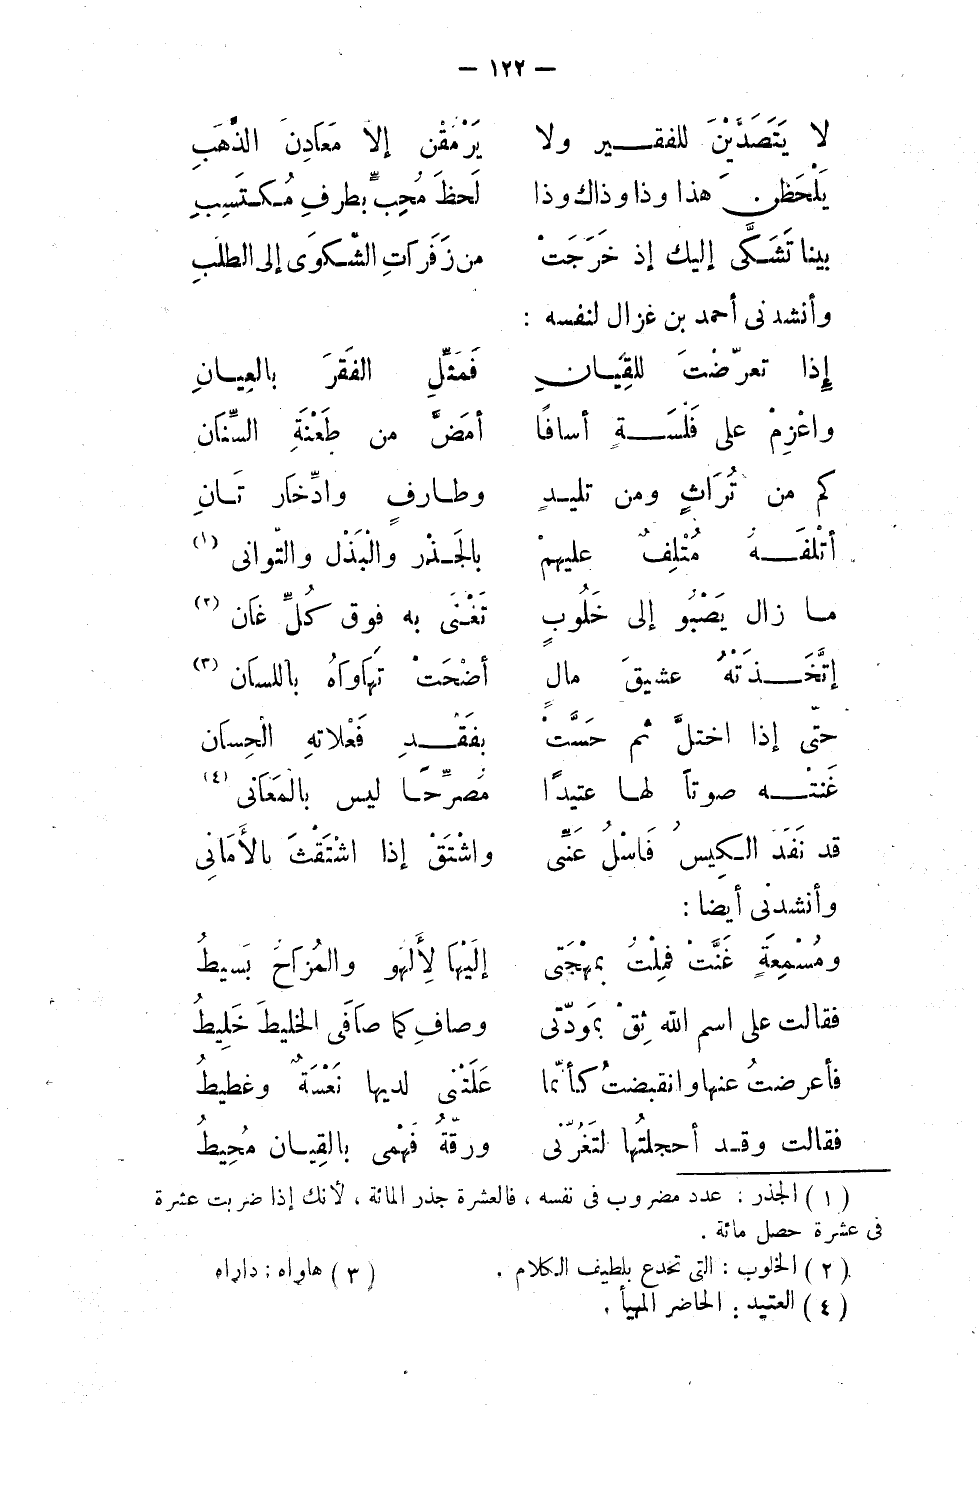 — ١٢٢ —
لا يَتَصَدَّيْنَ للفقـــير ولا يَرْمُقْن إلا مَعَادِنَ الذَّهَبِ
يَلْحَظْنَ هذا وذا وذاك وذا لَحظَ مُحِبٍّ بطرفِ مُكـتَسِبِ
بينا تَشَكَّى إليك إذ خَرَجَتْ من زَفَرَاتِ الشّكوَى إلى الطلَبِ
وأنشدنى أحمد بن غزال لنفسه :
إذا تعرّضْتَ للقِيَـانِ فَمَثِّلِ الفَقرَ بالعِيـانِ
واعْزِمْ على فَلْسَــةٍ أسافًا أمَضَّ من طَعْنَةِ السِّنَان
كم من تُرَاثٍ ومن تليـدٍ وطـارفٍ وادِّخار تَـانِ
أتْلفَــهُ مُتْلِفٌ عليهمْ بالجَـذْر والْبَذْل والتّوانى (١)
مـا زال يَصْبُو إلى خَلُوبٍ تَغْنَى به فوق كُلِّ غَان (٢)
إتَّخَــذَتْهُ عشيقَ مالٍ أضْحَتْ تهَاوَاهُ باللسان (٣)
حتّى إذا اختلَّ ثم حَسَّتْ بفَقْــدِ فَعْلاتهِ الْحِسان
غَنتْــه صوتاً لهـا عتيدًا مُصَرِّحًـا ليس بالْمَعَانى (٤)
قد نَفَدَ الـكِيسُ فَاسْلُ عَنِّى واشْتَقْ إذا اشْتَقْتَ بالأَمَانِى
وأنشدنى أيضا :
ومُسْمِعةٍ غَنَّتْ فمِلْتُ بمهْجَتى إلَيْهَا لِأَلهُو والمُزَاحُ بَسيطُ
فقالت على اسم الله ثِقْ بمَودّتى وصافِ كما صَافَى الخليطَ خَلِيطُ
فأعرضتُ عنها وانقبضتُ كأنّما عَلَتْنى لديها نَعْسَةٌ وغطيطُ
فقالت وقـد أحجلتُها لتَغُرّنى ورقّةُ فَهْمى بالقِيـان مُحِيطُ
(١) الجذر : عدد مضروب فى نفسه ، فالعشرة جذر المائة ، لأنك إذا ضربت عشرة
فى عشرة حصل مائة .
(٢) الخلوب : التى تخدع بلطيف الكلام . (٣) هاواه : داراه
(٤) العتيد : الحاضر المهيأ .